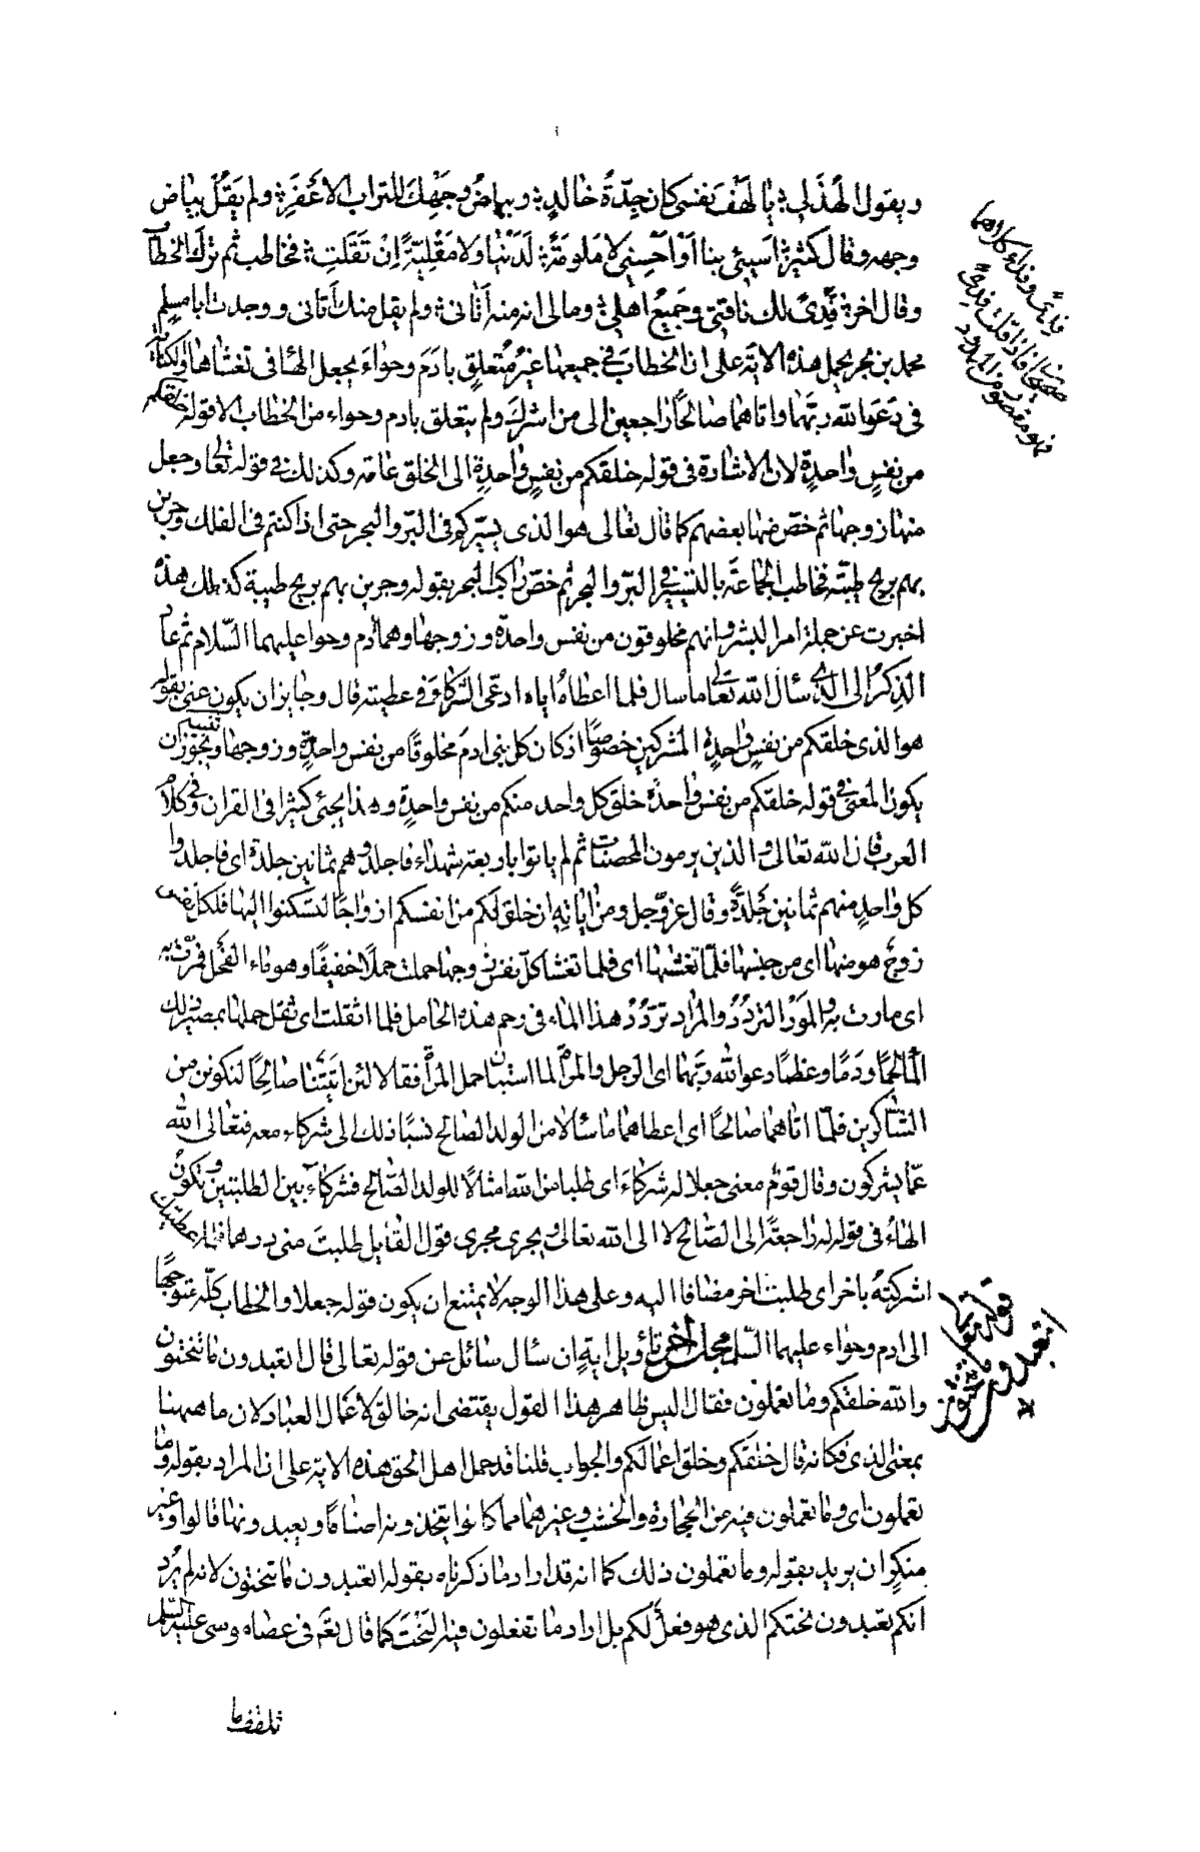 ويقول الهُذَلي يا لَهْفَ نفسي كان جِدّةُ خالدٍ وبياضُ وَجْهِكَ للتراب الأَعْفَرِ ولم يَقُل بياض
وجهه وقال كثير اَسيئي بنا اَوْ اَحْسِني لا مَلومَةً لدَيْنا ولا مَقْلِيّةً اِنْ تَقَلَّتِ فخاطب ثم ترك الخطاب
وقال اخر فِدًى لك ناقتي وجَميعُ اهلي ومالي انه منه أتاني ولم يقل منك أتاني ووجدت ابا مسلم
محمد بن بحر يحمل هذه الاية على ان الخطاب في جميعها غيرُ مُتعلقٍ بادَمَ وحواءَ ويجعل الهاء في تغشاها والكناية
في دَعَوَا الله ربّهما واتاهما صالحًا راجعين الى من اشرك ولم يتعلق بادم وحواء من الخطاب الا قوله خلقكم
من نفسٍ واحدةٍ لان الاشارة في قوله خلقكم من نفسٍ واحدةٍ الى الخلق عامة وكذلك في قوله تعالى وجعل
منها زوجها ثم خصّ منها بعضهم كما قال تعالى هو الذي يسيّركم في البرّ والبحر حتى اذا كنتم في الفلك وجرين
بهم بريح طيبة فخاطب الجماعَةَ بالتسيير في البرّ والبحر ثم خصّ راكب البحر بقوله وجرين بهم بريح طيبة كذلك هذه
اخبرت عن جملة امر البشر وانهم مخلوقون من نفس واحدة وزوجها وهما ادم وحوا عليهما السّلام ثم عاد
الذِكرُ الى الذي سأل الله تعالى ما سال فلما اعطاهُ اياه ادعى الشركاءَ في عطيته قال وجايز ان يكون عنى بقوله
هو الذي خلقكم من نفسٍ واحدةٍ المشركين خصوصًا اذ كان كل بني ادم مخلوقًا من نفس واحدةٍ وزوجها ويجوز ان
يكون المعنى في قوله خلقكم من نفس واحدة خلق كل واحد منكم من نفس واحدةٍ وهذا يجئى كثيرا في القران وفي كلام
العرب قال الله تعالى والذين يرمون المحصنات ثم لم ياتوا باربعة شهداء فاجلدوهم ثمانين جلدة اي فاجلدوا
كل واحدٍ منهم ثمانين جَلدَةً وقال عزّ وجل ومن اياتِهِ ان خلق لكم من انفسكم ازواجًا لتسكنوا اليها فلكل نفس
زوجٌ هو منها اي من جنسها فلمّا تغشيها اي فلما تغشا كلّ نفس زوجها حملت حملًا خفيفًا وهو ماء الفحل فمرّت به
اي مارت به والمَوْرُ التردُّدُ والمراد تردُّدُ هذا الماء في رحم هذه الحامل فلما اثقلت اي ثقل حملها بمصير ذلك
الماء لحمًا ودَمًا وعظمًا دعوا الله ربّهما اي الرجل والمرأة لما استبان حمل المرأة فقالا لئن اتيتنا صالحًا لنكونن من
الشاكرين فلمّا اتاهما صالحًا اي اعطاهما ما سألا من الولد الصالح نسبا ذلك الى شركاء معه فتعالى الله
عمّا يشركون وقال قومٌ معنى جعلا له شركاءَ اي طلبا من الله امثالًا للولد الصالح فشركاء بين الطلبتين وتكونُ
الهاءُ في قوله له راجعةً الى الصالح لا الى الله تعالى ويجري مجرى قول القايل طلبتَ مني درهما فلما اعطيتك
اشركتَهُ باخر اي طلبت اخر مضافا اليه وعلى هذا الوجه لا يمتنع ان يكون قوله جعلا والخطاب كلّه متوجهًا
الى ادم وحواء عليهما السلم مجلس اخر تأويل ايةٍ ان سأل سائل عن قوله تعالى قال اتعبدون ما تنحتون
والله خلقكم وما تعملون فقال اليس ظاهر هذا القول يقتضي انه خالق لاعمال العباد لان ما ههنا
بمعنى الذي فكانه قال خلقكم وخلق اعمالكم والجواب قلنا قد حمل اهل الحق هذه الاية على ان المراد بقوله وما
تعملون اي وما تعملون فيه من الحجارة والخشب وغيرهما مما كانوا يتخذونه اصنامًا ويعبدونها قالوا وغير
منكرٍ ان يريد بقوله وما تعملون ذلك كما انه قد اراد ما ذكرناه بقوله اتعبدون ما تنحتون لانه لم يُرد
انكم تعبدون نحتكم الذي هو فعلٌ لكم بل اراد ما تفعلون فيه النَّحْتَ كما قال تعَم في عصاه موسى عليه السلم
تلقف ما